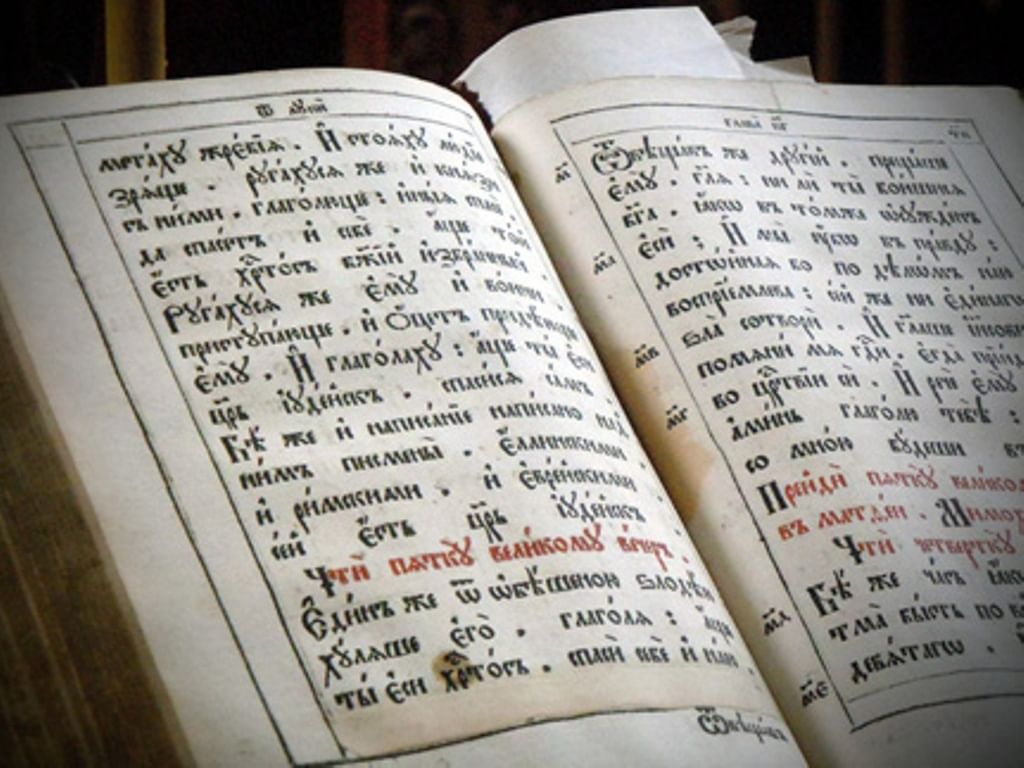 ѿ луки́
мета́ху жре́бїѧ . И҆ стоѧ́ху лю́дїе
зрѧ́ще . руга́хусѧ же и҆ кнѧ́зи
съ ни́ми . глаго́люще : и҆ны́ѧ спасе́
да спасе́тъ и҆ себѐ . а҆́ще то́й
є҆́сть хр҇то́съ бж҃їй и҆збра́нный .
Руга́хусѧ же є҆мꙋ̀ и҆ во́ини
приступа́юще . и҆ О҆́цетъ придѣ́юще
є҆мꙋ̀ . И҆ глаго́лаху : а҆́ще ты̀ є҆сѝ
цр҃ь і҆ꙋде́йскъ . спаси́сѧ са́мъ
Бѣ́ же и҆ написа́нїе напи́сано над
ни́мъ писмены̀ . Є҆́ллинскими
и҆ ри́мскими . и҆ є҆вре́йскими
се́й є҆́сть цр҃ь і҆ꙋде́йскъ
Чтѝ пѧткꙋ̀ вели́комꙋ ве́черъ .
Є҆ди́нъ же ѿ ѡ҆бѣ́шеною ѕлодѣ́ю
хꙋ́лѧше є҆го̀ . глаго́лѧ : а҆́ще
ты̀ є҆сѝ хр҇то́съ . спасѝ себѐ и҆ на́ю .
Ѿвѣща́въ
глава̀ к҃г
м҃
м҃а
м҃в
м҃г
м҃д
м҃е
Ѿвѣща́въ же дрꙋгі́й . преща́ше
є҆мꙋ̀ . гл҃ѧ : ни лѝ ты̀ бои́шисѧ
бг҃а . ꙗ҆́кѡ въ то́мже ѡ҆сꙋжде́нъ
є҆сѝ : И҆ мы̀ ᲂу҆́бѡ въ пра́вдꙋ :
досто́йнаѧ бо по дѣлѡ́мъ на́ю
воспрїе́млева : се́й же ни є҆ди́нагѡ
ѕла̀ сотворѝ . И҆ гл҃аше і҆и҃сови
помѧнѝ мѧ гд҇и . є҆гда̀ прїи́де
во цр҇твїи сѝ . И҆ речѐ є҆мꙋ̀
а҆ми́нь глаго́лю тебѣ̀ :
со мно́ю бꙋ́деши въ
Прейдѝ пѧткꙋ̀ вели́ко
въ мѧт ден .
Чтѝ четверткꙋ̀
Бѣ́ же ча́съ ꙗ҆́кѡ
тма̀ бы́сть по в
девѧ́тагѡ .